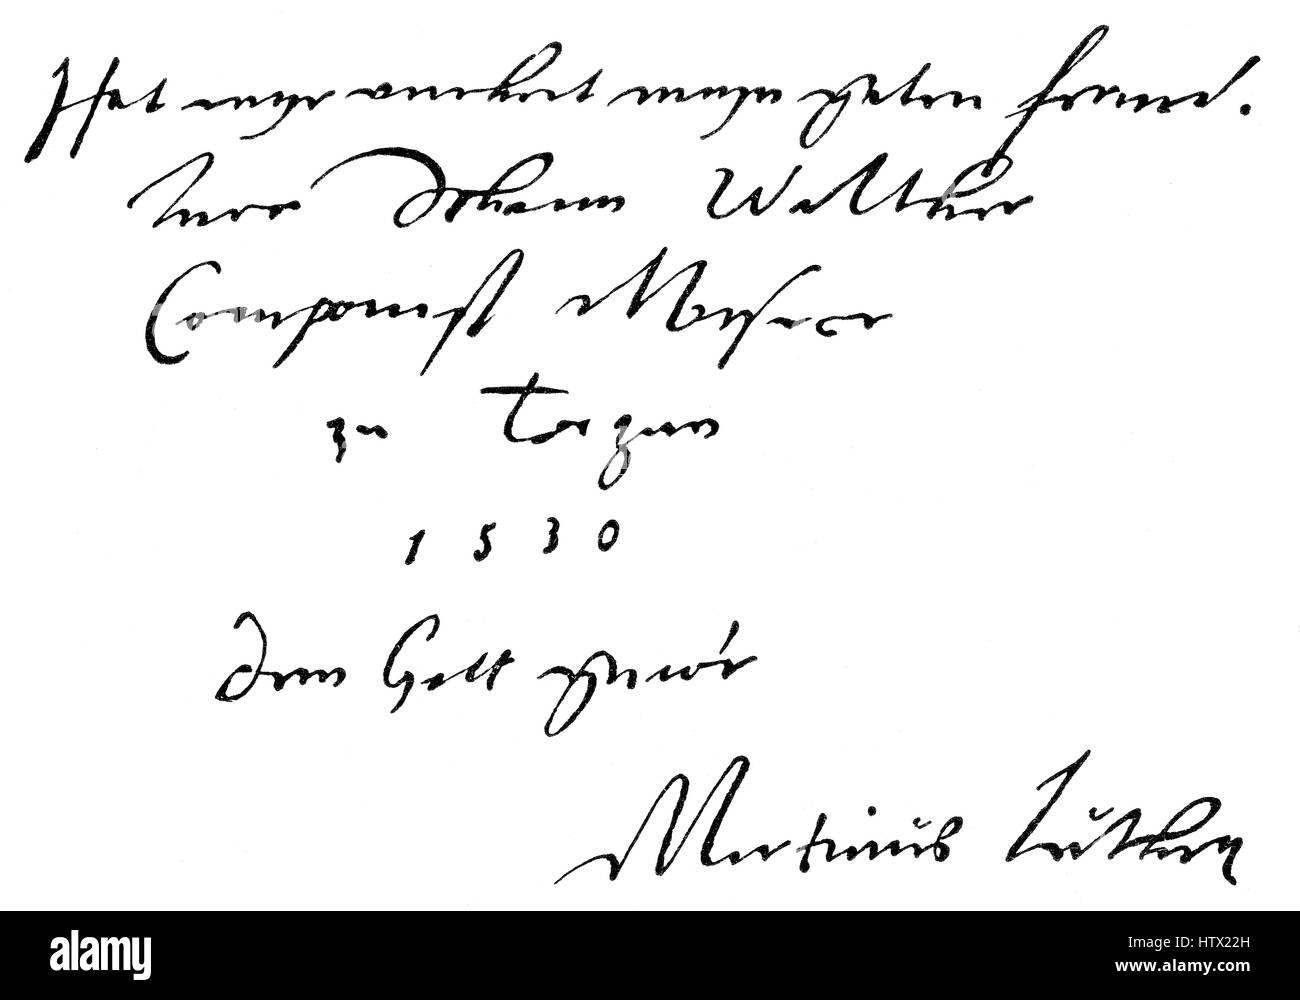 Hat myr verehret meyn guter freund.
herr Johann Walther
Componist Musice
zu Torgaw
1530
dem Gott gnade
Martinus Luther
alamy
a
alamy stock photo
HTX22H
www.alamy.com